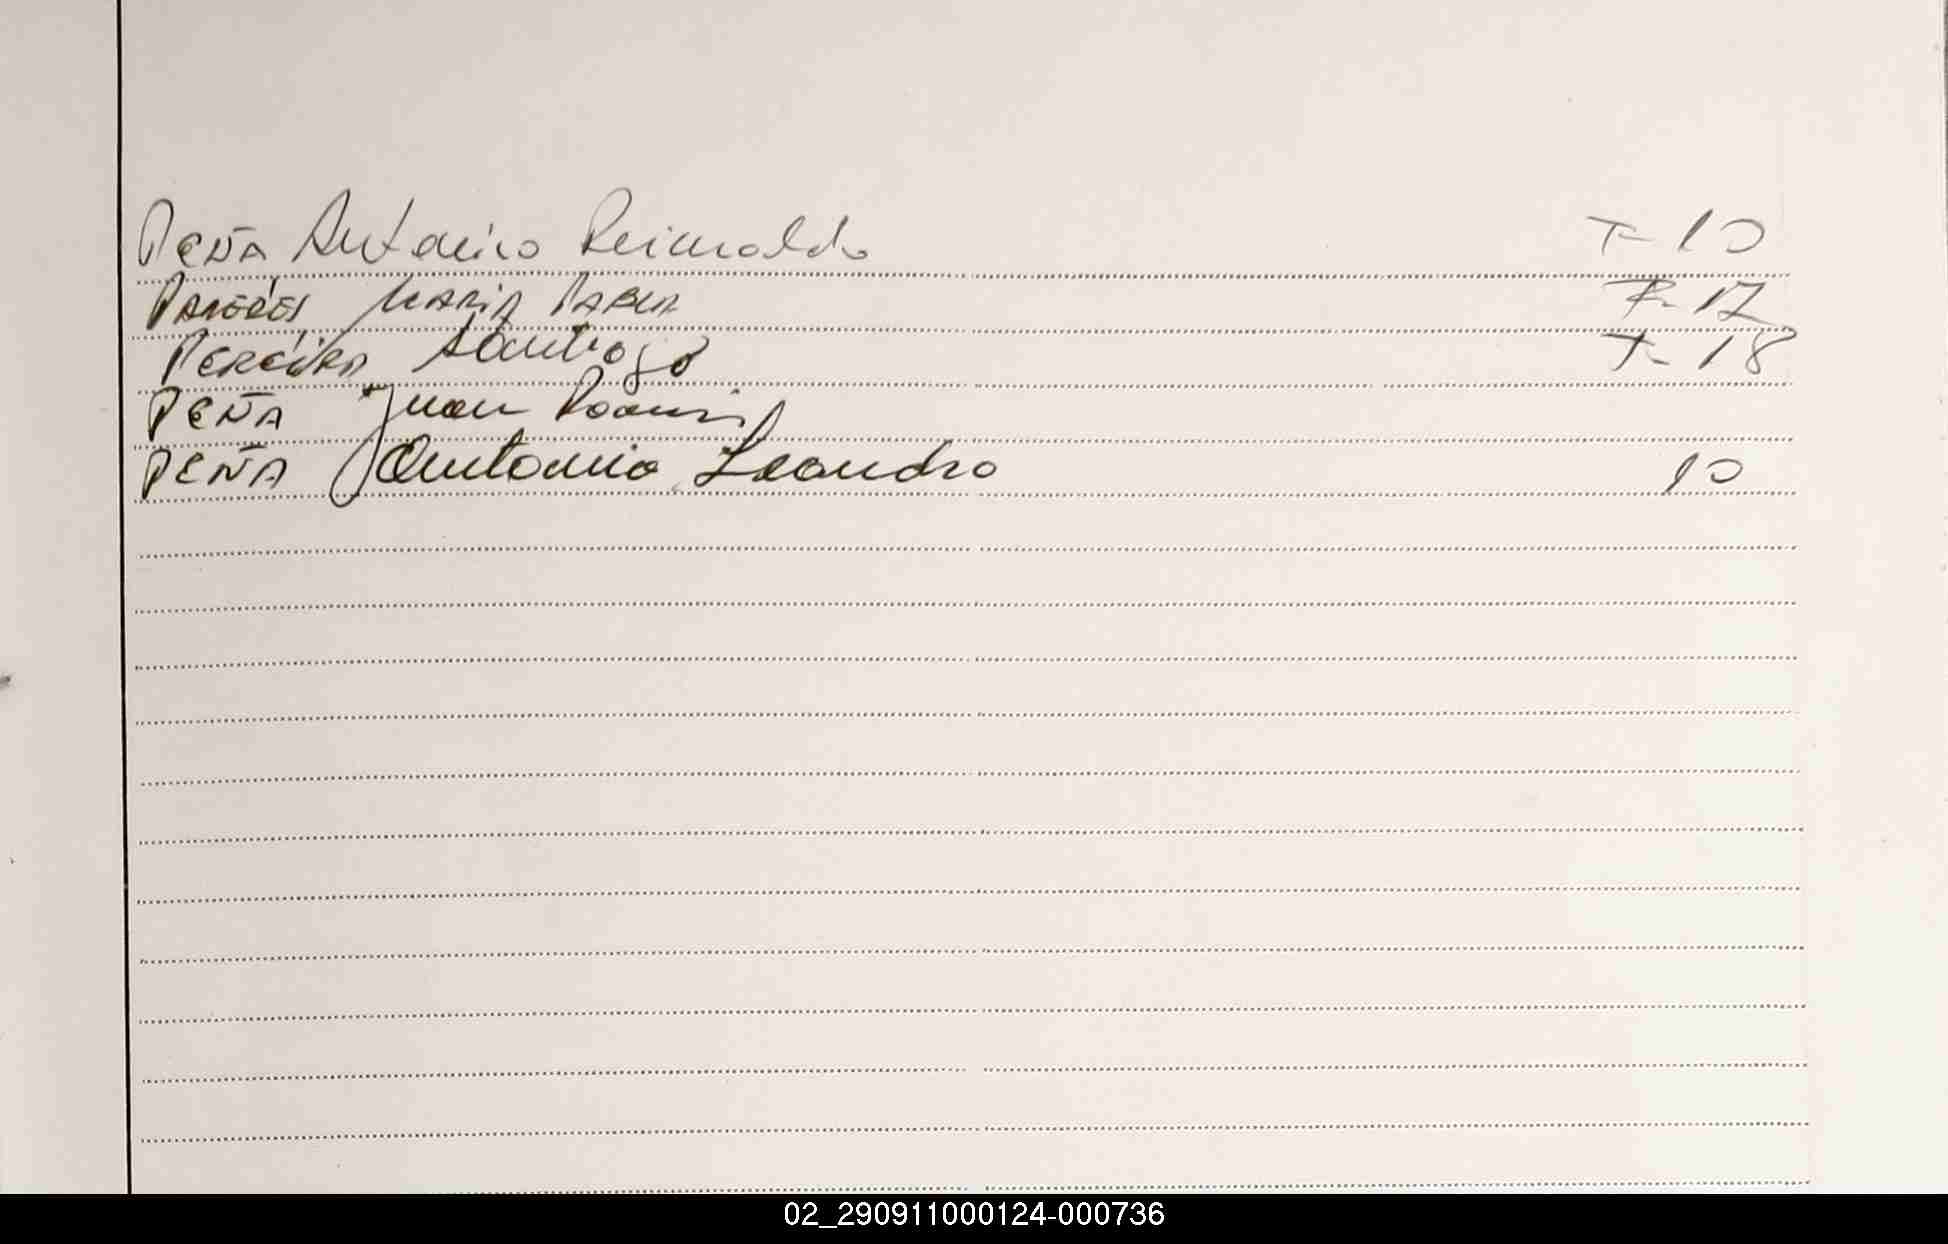 PEÑA Antonio Reimaldo T- 10
PAREDES MARIA PABLA F- 12
PEREIRA Santiago T- 18
PEÑA Juan
PEÑA Antonio Leandro 10
02_290911000124-000736